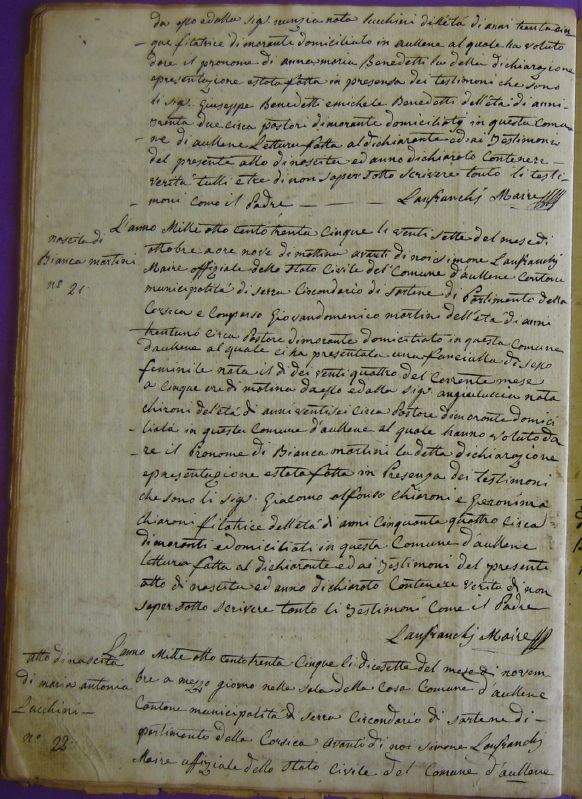 da esso e dalla sig.ª nunzia nata Lucchini dell'età di anni trenta cin
que filatrice dimorante domiciliato in aullene al quale ha voluto
dare il pronome di anna maria Benedetti la della dichiarazione
e presentazione e stata fatta in presensa dei testimoni che sono
li sig.ⁱ Giuseppe Benedetti e michele Benedetti dell'età di anni
trenta due circa pastori dimorante domiciliati in questa Comu
ne di aullene Lettura fatta al dichiarante ed ai Testimoni
del presente atto di nascita ed anno dichiarato Contenere
verità tutti e tre di non saper sotto scrivere tonto li testi
moni come il Padre Lanfranchj Maire
nascita di
Bianca martini
nº 21.
L'anno Mille otto cento trenta Cinque li venti sette del mese di
ottobre a ore nove di mattina avanti di noi simone Lanfranchj
Maire offiziale dello stato Civile del Comune d'aullene Cantone
municipalità di serra Circondario di sartene di Partimento della
Corsica e Comparso Giovan domenico martini dell'età di anni
trentuno circa Pastore dimorante domiciliato in questa Comune
d'aullene al quale ci ha presentato una fanciulla di sesso
feminile nata il dì dei venti quattro del Corrente mese
a Cinque ore di matina da esso e dalla sig.ª angiela lucia nata
chiaroni dell'età di anni ventisei circa Pastore dimorante domici
liata in questa Comune d'aullene al quale hanno voluto da
re il Pronome di Bianca martini la detta dichiarazione
e presentazione e stata fatta in Presenza dei testimoni
che sono li sig.ⁱ Giacomo alfonso Chiaroni e Geronima
chiaroni filatrice dell'età di anni Cinquanta quattro circa
dimoranti e domiciliati in questa Comune d'aullene
lettura fatta al dichiarante ed ai Testimoni del presente
atto di nascita ed anno dichiarato Contenere verità di non
saper sotto scrivere tonto li Testimoni Come il Padre
Lanfranchj Maire
atto di nascita
di maria antonia
Lucchini
nº 22.
L'anno Mille otto cento trenta Cinque li dicisette del mese di novem
bre a mezzo giorno nella sala della Casa Comune d'aullene
Cantone municipalità di serra Circondario di sartene di
partimento della Corsica avanti di noi simone Lanfranchj
Maire uffiziale dello stato Civile del Comune d'aullene